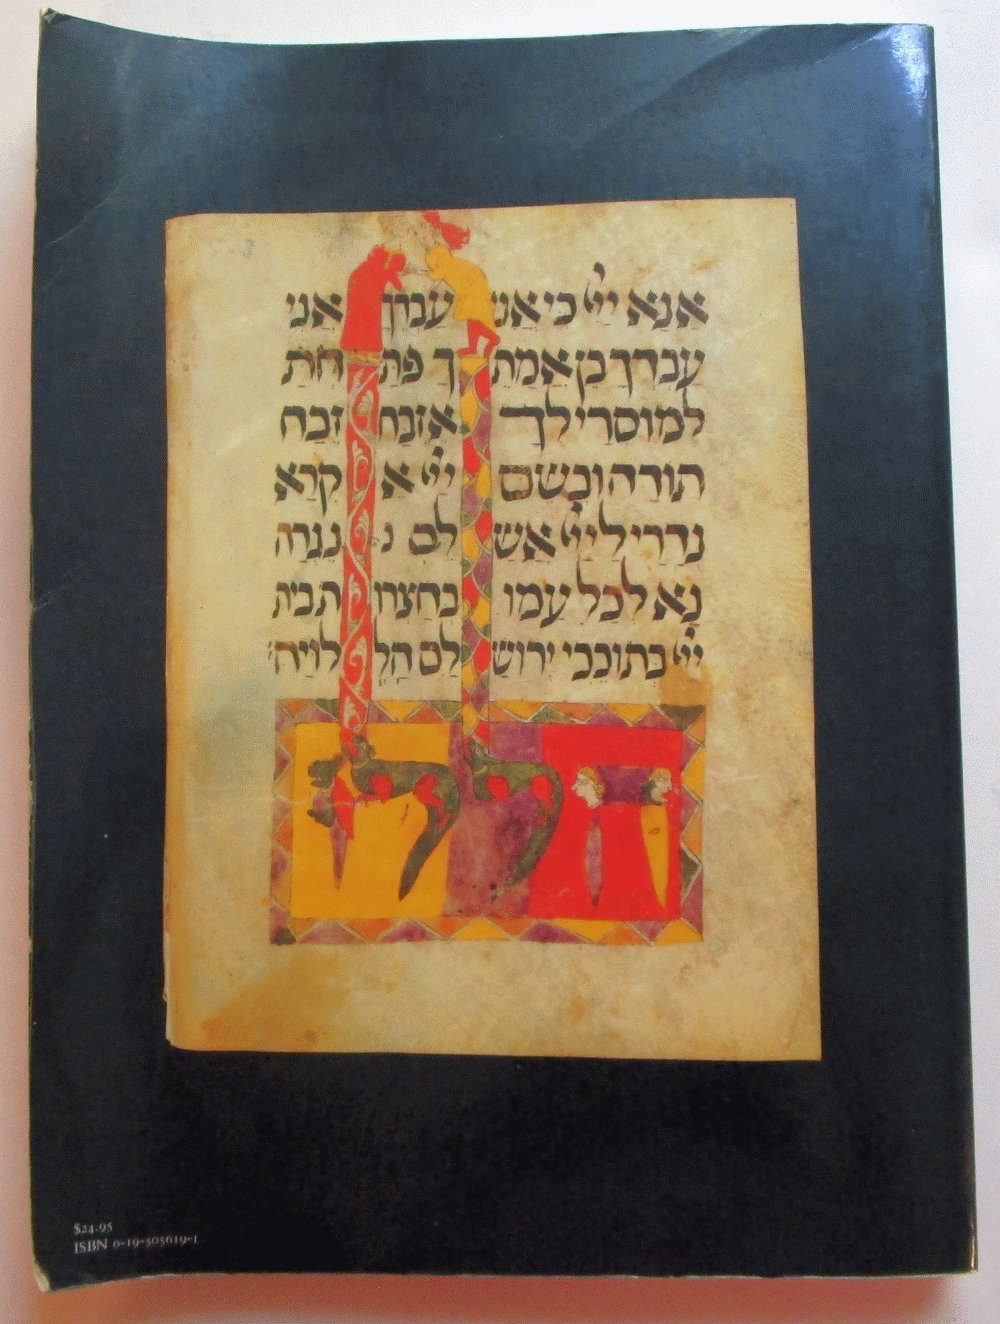 אנא ייי כי אני עבדך אני
עבדך בן אמת ך פת חת
למוסרי לך אזבח זבח
תודה ובשם ייי א קרא
נדרי לייי אש לם נ נגדה
נא לכל עמו בחצרו ת בית
ייי בתוככי ירוש לם הל לויה
הללו
$24.95
ISBN 0-19-505619-1